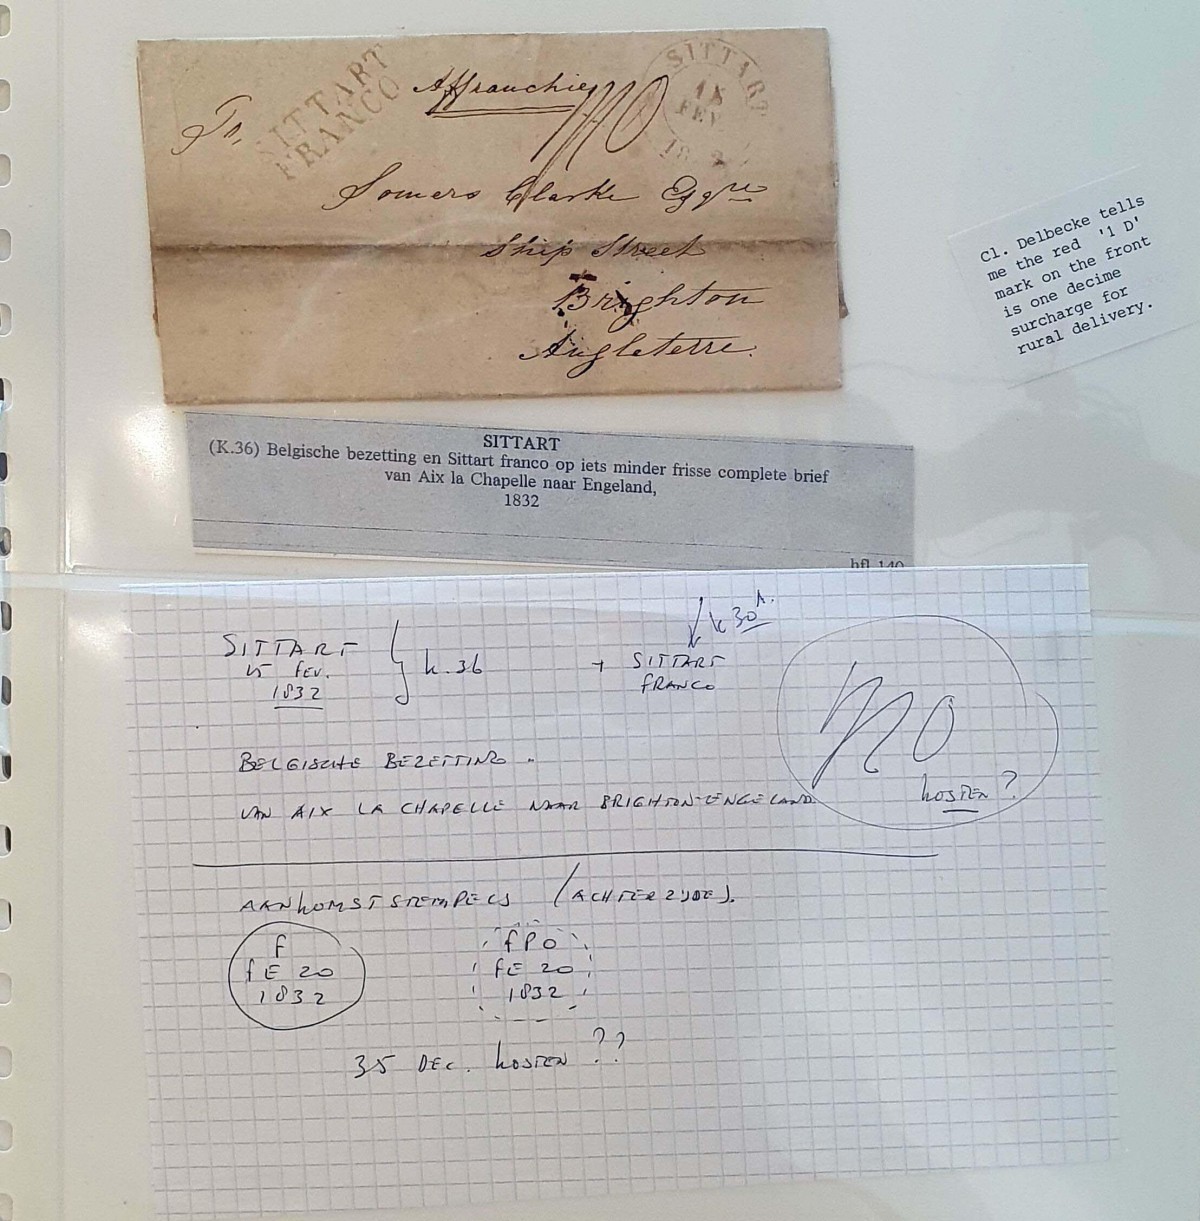 SITTART
FRANCO
Affranchie
SITTART
15
FEV
18
To.
Somers Clarke Esqre
Ship Street
Brighton
Angleterre.
Cl. Delbecke tells
me the red '1 D'
mark on the front
is one decime
surcharge for
rural delivery.
SITTART
(K.36) Belgische bezetting en Sittart franco op iets minder frisse complete brief
van Aix la Chapelle naar Engeland,
1832
hfl 140
SITTART
15 FEV.
1832
K.36
K 30A.
+ SITTART
FRANCO
BELGISCHE BEZETTING.
VAN AIX LA CHAPELLE NAAR BRIGHTON-ENGELAND
KOSTEN?
AANKOMSTSTEMPELS (ACHTERZIJDE).
F
FE 20
1832
FPO
FE 20
1832
35 DEC. KOSTEN ??